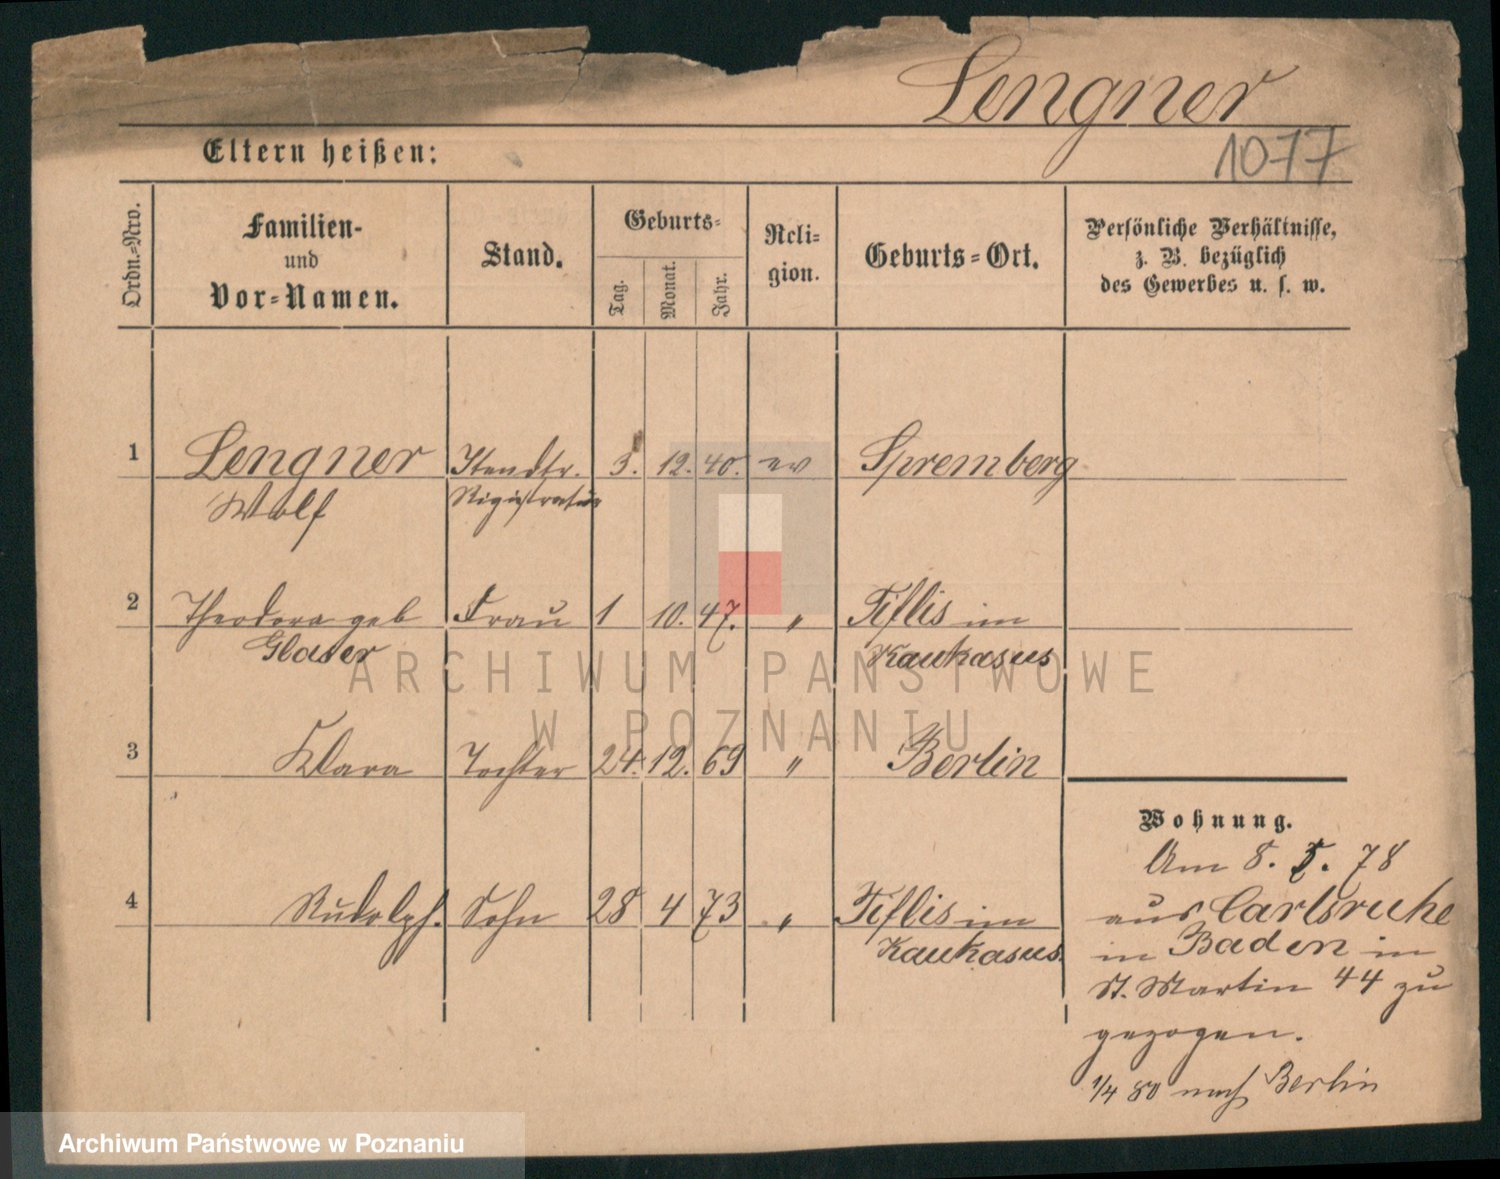 Lengner
1077
Eltern heißen:
Ordn.-Nro.
Familien-
und
Vor-Namen.
Stand.
Geburts-
Tag.
Monat.
Jahr.
Reli-
gion.
Geburts-Ort.
Persönliche Verhältnisse,
z. B. bezüglich
des Gewerbes u. s. w.
1 Lengner 3. 12. 40. ev Spremberg
Wolf
2 Theodora geb Frau 1 10. 47. " Tiflis im
Glaser Kaukasus
3 Klara Tochter 24. 12. 69 " Berlin
4 Rudolph. Sohn 28 4 73 " Tiflis im
Kaukasus.
Wohnung.
Am 8. 78
aus Carlsruhe
in Baden in
St. Martin 44 zu
gezogen.
1/4 80 nach Berlin
ARCHIWUM PAŃSTWOWE
W POZNANIU
Archiwum Państwowe w Poznaniu